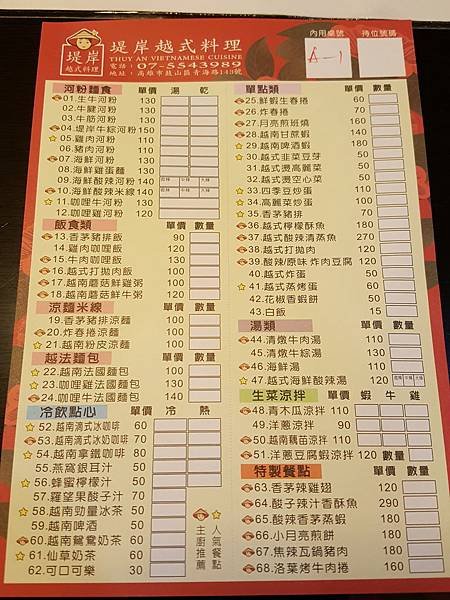 堤岸
越式料理
堤岸越式料理
THUY AN VIETNAMESE CUISINE
電話：07-5543989
地址：高雄市鼓山區青海路143號
內用桌號
待位號碼
A-1
河粉麵食 單價 湯 乾
01.生牛河粉 130
02.牛腱河粉 130
03.牛筋河粉 130
04.堤岸牛綜河粉 150
05.雞肉河粉 110
06.豬肉河粉 110
07.海鮮河粉 130
08.海鮮蛋麵 130
09.海鮮酸辣河粉 140
10.海鮮酸辣米線 140
11.咖哩牛河粉 130
12.咖哩雞河粉 120
飯食類 單價 數量
13.香茅豬排飯 90
14.雞肉咖哩飯 120
15.牛肉咖哩飯 120
16.越式打拋肉飯 100
17.越南蘑菇鮮雞粥 100
18.越南蘑菇鮮牛粥 120
涼麵米線 單價 數量
19.香茅豬排涼麵 100
20.炸春捲涼麵 100
21.越南粉皮涼麵 100
越法麵包 單價 數量
22.越南法國麵包 100
23.咖哩雞法國麵包 100
24.咖哩牛法國麵包 140
冷飲點心 單價 冷 熱
52.越南滴式冰咖啡 60
53.越南滴式冰奶咖啡 70
54.越南拿鐵咖啡 80
55.燕窩銀耳汁 50
56.蜂蜜檸檬汁 50
57.羅望果酸子汁 60
58.越南勁量冰茶 60
59.越南啤酒 80
60.越南鴛鴦奶茶 60
61.越南仙草奶茶 60
62.可口可樂 30
主廚推薦
人氣餐點
單點類 單價 數量
25.鮮蝦生春捲 60
26.炸春捲 70
27.月亮煎班燒 160
28.越南甘蔗蝦 160
29.越南啤酒蝦 180
30.越式韭菜豆芽 50
31.越式燙高麗菜 50
32.越式燙空心菜 50
33.四季豆炒蛋 100
34.高麗菜炒蛋 100
35.香茅豬排 70
36.越式檸檬酥魚 180
37.越式酸辣清蒸魚 270
38.越式打拋肉 120
39.酸辣/原味 炸肉豆腐 120
40.越式炸蛋 50
41.越式蒸烤蛋 60
42.花椒香蝦餅 50
43.白飯 15
湯類 單價 數量
44.清燉牛肉湯 110
45.清燉牛綜湯 130
46.海鮮湯 110
47.越式海鮮酸辣湯 120
生菜涼拌 單價 蝦 牛 雞
48.青木瓜涼拌 110
49.洋蔥涼拌 110
50.越南藕苗涼拌 110
51.洋蔥豆腐蝦涼拌 120 數量
特製餐點 單價 數量
63.香茅辣雞翅 120
64.酸子辣汁香酥魚 290
65.酸辣香茅蒸蝦 180
66.小月亮煎餅 80
67.焦辣瓦鍋豬肉 180
68.洛葉烤牛肉捲 160